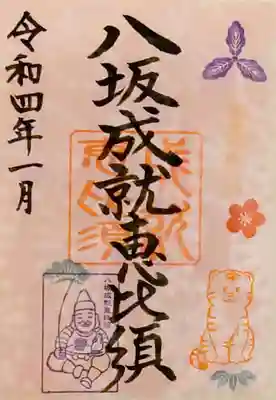 八坂成就恵比須
令和四年一月